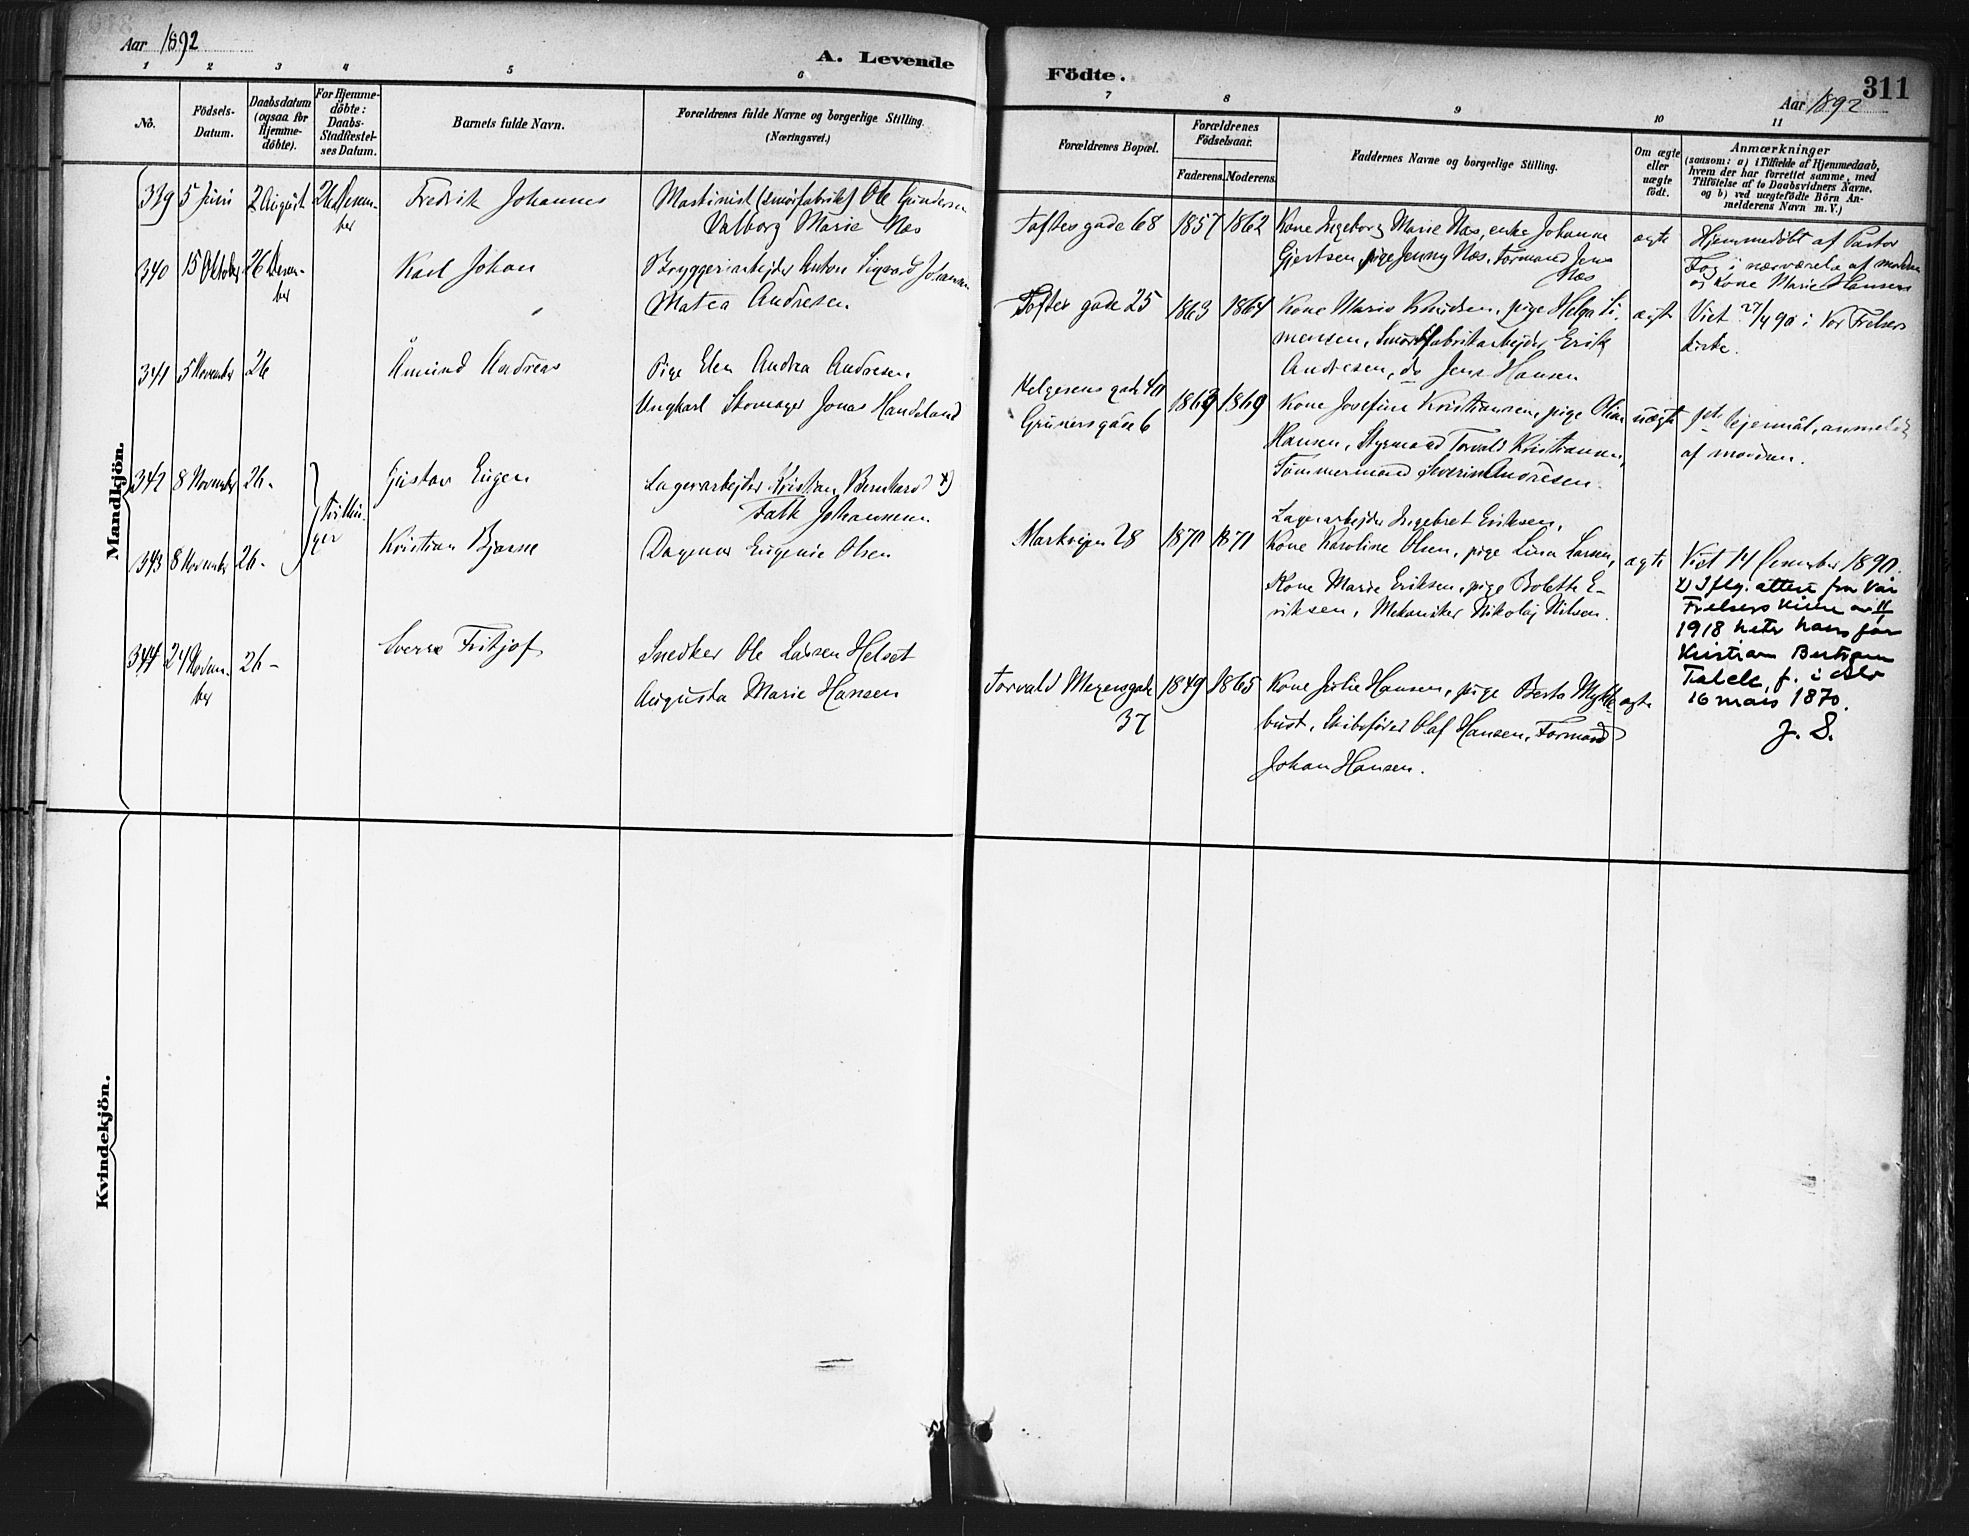 Aar 1892
A. Levende
1 2 3 4 5 6
No.
Födsels-
Datum.
Daabsdatum
(ogsaa for
Hjemme-
döbte).
For Hjemme-
döbte:
Daabs-
Stadfæstel-
ses Datum.
Barnets fulde Navn.
Forældrenes fulde Navne og borgerlige Stilling.
(Næringsvei.)
Mandkjön.
339 5 Juni 2 August 26 Decem-
ber
Fredrik Johannes
Maskinist (Smörfabrik) Ole Gundersen
Valborg Marie Næs
340 15 Oktober 26 Decem-
ber
Karl Johan
Bryggeriarbejder Anton Sigvard Johansen
Matea Andresen
341 5 November 26
Åmund Andreas
Pige Elen Andrea Andresen
Ungkarl Skomager Jonas Handeland
342 8 November 26-
Gustav Eugen
Lagerarbejder Kristian Bernhard x)
Falk Johannesen
Tvillin-
ger
343 8 November 26-
Kristian Bjarne
Dagmar Eugenie Olsen
344 24 Novem-
ber
26-
Sverre Fritjof
Snedker Ole Larsen Helset
Augusta Marie Hansen
Kvindekjön.
Födte.
311
Aar 1892
7 8 9 10 11
Forældrenes Bopæl.
Forældrenes
Födselsaar.
Faderens. Moderens.
Faddernes Navne og borgerlige Stilling.
Om ægte
eller
uægte
födt.
Anmærkninger
(saasom: a) i Tilfælde af Hjemmedaab,
hvem der har forrettet samme, med
Tilföielse af to Daabsvidners Navne,
og b) ved uægtefödte Börn An-
melderens Navn m. V.)
Toftesgade 68 1857 1862
Kone Ingeborg Marie Næs, enke Johanne
Gjertsen, pige Jenny Næs, Formand Jens
Næs
ægte
Hjemmedöbt af Pastor
i nærværelse af moderen
og kone Marie Hansen
Toftes gade 25 1863 1864
Kone Marie Knudsen, pige Helga Si-
mensen, Smörfabrikarbejder Erik
Andresen, do Jens Hansen
ægte
Viet 27/4 90 i Vor Frelsers
kirke.
Helgesens gade 40
Grünersgade 6
1869 1869
Kone Josefine Kristiansen, pige Oline
Hansen, Styrmand Torvald Kristiansen,
Tömmermand Severin Andresen.
uægte
1ste lejermål, anmeldt
af moderen.
Markvejen 28 1870 1871
Lagerarbejder Ingebret Eriksen,
Kone Karoline Olsen, pige Lina Larsen,
Kone Marie Eriksen, pige Bolette E-
riksen, Mekaniker Nikolaj Nilsen.
ægte
Viet 14 December 1890.
x) Iflg. attest fra Vår
Frelsers kirke av
1918 heter hans far
Kristian Bertram
f. i Oslo
16 mars 1870.
J. S.
Torvald Meyersgade
37
1849 1865
Kone Julie Hansen, pige Berta Mykle-
bust, Skibsförer Olaf Hansen, Formand
Johan Hansen.
ægte